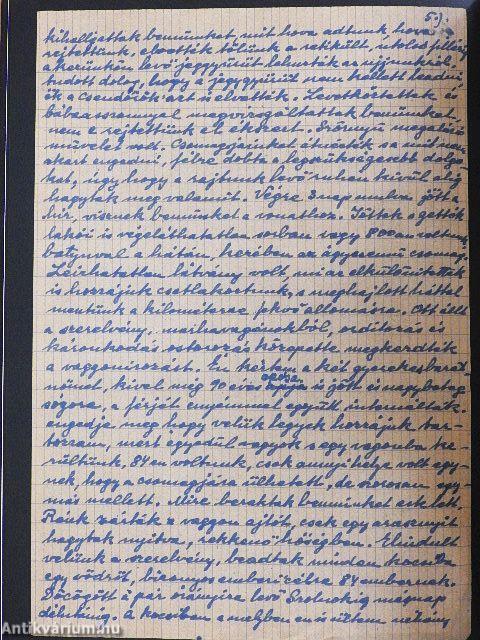 5.)
kihallgattak bennünket, mit hova adtunk, hova
rejtettünk, elvették tőlünk a retikült, utolsó fillérig
a kezünkön levő jeggyűrűt lehúzták az ujjunkról
tudott dolog, hogy a jegygyűrűt nem kellett leadni
ők a csendőrök azt is elvették. Levetkőztettek és
bábaasszonnyal megvizsgáltattak bennünket,
nem e rejtettünk el ékszert. Szörnyű megalázó
művelet volt. Csomagjainkat átnézték s a mit nem
akart engedni, félre dobta a legszükségesebb dolgo-
kat, úgy hogy a rajtunk levő ruhán kívül alig
hagytak meg valamit. Végre 3 nap mulva jött a
hír, visznek bennünket a vonathoz. Jöttek a gettók
lakói is végeláthatatlan sorban vagy 800an voltunk
batyuval a hátán, kezében az egyetlen csomag.
Leírhatatlan látvány volt, mi az elkülönítettek
is hozzájuk csatlakoztunk, s meghajlott háttal
mentünk a kilométerre fekvő állomásra. Ott állt
a szerelvény, marhavagonokból, ordítozás és
káromkodás ostorozás közepette megkezdték
a vaggonírozást. Én kértem a két gyerekes barát-
nőmet, kivel még 90 éves apósa is jött és nagybeteg
sógora, a férjét enyémmel együtt internálták.
engedje meg hogy velük legyek hozzájuk tar-
tozzam, mert egyedül vagyok s egy vagonba ke-
rültünk, 84 en voltunk, csak annyi hely volt egy-
nek, hogy a csomagjára ülhetett, de szorosan egy-
más mellett. Mire beraktak bennünket este lett.
Ránk zárták a vaggon ajtót, csak egy arasznyit
hagytak nyitva, rekkenő hőségben. Elindult
velünk a szerelvény, beadtak minden kocsiba
egy vödröt, bizonyos emberi célra 84 embernek.
Döcögött a pár órányira levő Szolnokig másnap
délutánig. A kocsiban a melyben én is ültem néhány
Antikvárium.hu